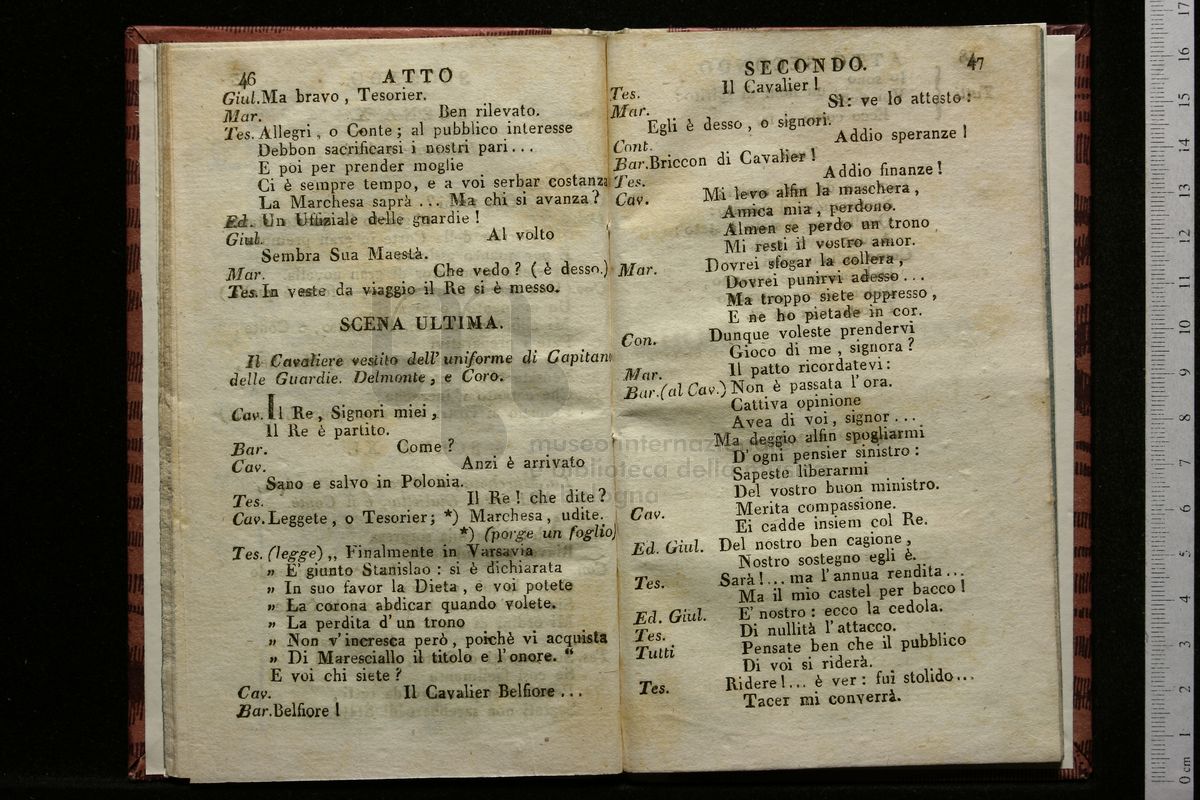 46 ATTO
Giul. Ma bravo, Tesorier.
Mar. Ben rilevato.
Tes. Allegri, o Conte; al pubblico interesse
Debbon sacrificarsi i nostri pari...
E poi per prender moglie
Ci è sempre tempo, e a voi serbar costanza
La Marchesa saprà ... Ma chi si avanza?
Ed. Un Uffiziale delle guardie!
Giul. Al volto
Sembra Sua Maestà.
Mar. Che vedo? (è desso.)
Tes. In veste da viaggio il Re si è messo.
SCENA ULTIMA.
Il Cavaliere vestito dell' uniforme di Capitano
delle Guardie. Delmonte, e Coro.
Cav. Il Re, Signori miei,
Il Re è partito.
Bar. Come?
Cav. Anzi è arrivato
Sano e salvo in Polonia.
Tes. Il Re! che dite?
Cav. Leggete, o Tesorier; *) Marchesa, udite.
*) (porge un foglio)
Tes. (legge) „ Finalmente in Varsavia
„ E' giunto Stanislao: si è dichiarata
„ In suo favor la Dieta, e voi potete
„ La corona abdicar quando volete.
„ La perdita d' un trono
„ Non v' incresca però, poichè vi acquista
„ Di Maresciallo il titolo e l' onore. “
E voi chi siete?
Cav. Il Cavalier Belfiore ...
Bar. Belfiore!
SECONDO. 47
Tes. Il Cavalier!
Mar. Sì: ve lo attesto:
Egli è desso, o signori.
Cont. Addio speranze!
Bar. Briccon di Cavalier!
Tes. Addio finanze!
Cav. Mi levo alfin la maschera,
Amica mia, perdono.
Almen se perdo un trono
Mi resti il vostro amor.
Mar. Dovrei sfogar la collera,
Dovrei punirvi adesso...
Ma troppo siete oppresso,
E ne ho pietade in cor.
Con. Dunque voleste prendervi
Gioco di me, signora?
Mar. Il patto ricordatevi:
Bar. (al Cav.) Non è passata l' ora.
Cattiva opinione
Avea di voi, signor...
Ma deggio alfin spogliarmi
D' ogni pensier sinistro:
Sapeste liberarmi
Del vostro buon ministro.
Cav. Merita compassione.
Ei cadde insiem col Re.
Ed. Giul. Del nostro ben cagione,
Nostro sostegno egli è.
Tes. Sarà!... ma l' annua rendita...
Ma il mio castel per bacco!
Ed. Giul. E' nostro: ecco la cedola.
Tes. Di nullità l' attacco.
Tutti Pensate ben che il pubblico
Di voi si riderà.
Tes. Ridere!... è ver: fui stolido...
Tacer mi converrà.